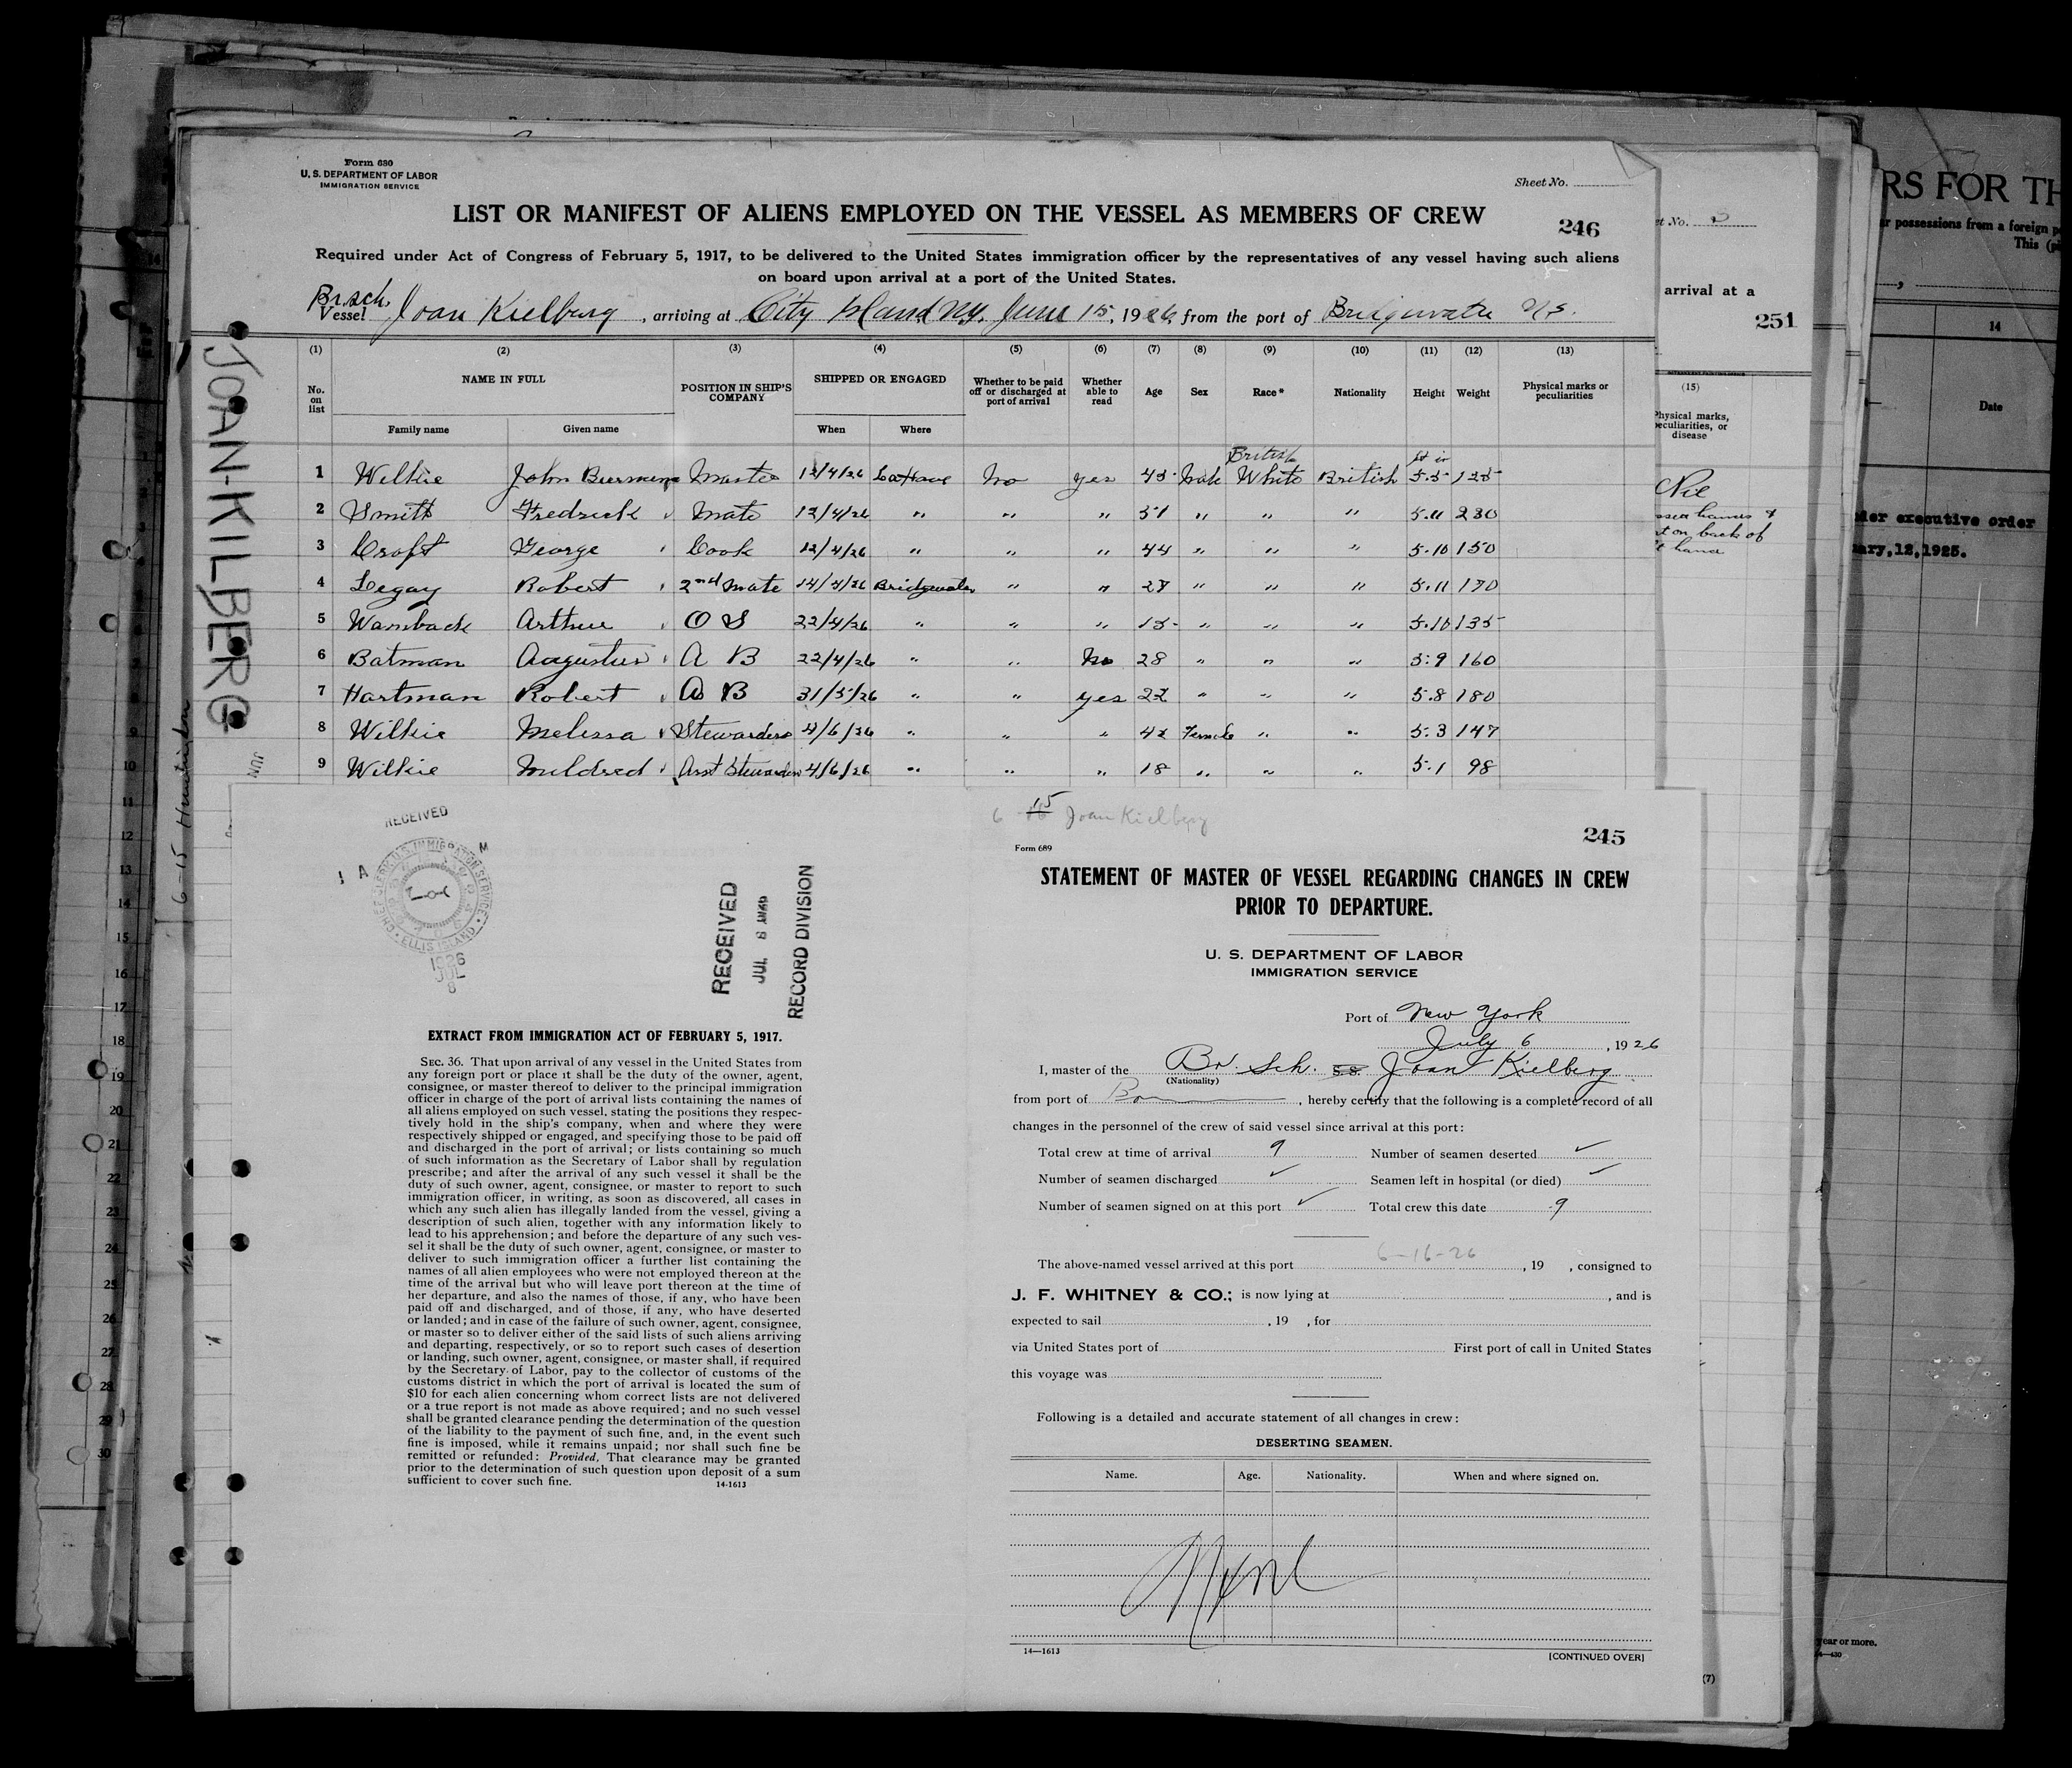 Form 680
U. S. DEPARTMENT OF LABOR
IMMIGRATION SERVICE
Sheet No.
LIST OR MANIFEST OF ALIENS EMPLOYED ON THE VESSEL AS MEMBERS OF CREW
246
Required under Act of Congress of February 5, 1917, to be delivered to the United States immigration officer by the representatives of any vessel having such aliens
on board upon arrival at a port of the United States.
Br. sch.
Vessel Joan Kielberg, arriving at City Island NY. June 15, 1926, from the port of Bridgewater N.S.
(1) (2) (3) (4) (5) (6) (7) (8) (9) (10) (11) (12) (13)
No. on list NAME IN FULL POSITION IN SHIP'S COMPANY SHIPPED OR ENGAGED Whether to be paid off or discharged at port of arrival Whether able to read Age Sex Race* Nationality Height Weight Physical marks or peculiarities
Family name Given name When Where
British ft in
1 Wilkie John Master 12/4/26 LaHave No yes 45 Male White British 5.5 125
2 Smith Fredrick Mate 12/4/26 " " " 51 " " " 5.11 230
3 Croft George Cook 12/4/26 " " " 44 " " " 5.10 150
4 Legay Robert 2nd Mate 14/4/26 Bridgewater " " 27 " " " 5.11 170
5 Wamback Arthur O S 22/4/26 " " " 15 " " " 5.10 135
6 Batman Augustus A B 22/4/26 " " No 28 " " " 5.9 160
7 Hartman Robert A B 31/5/26 " " yes 22 " " " 5.8 180
8 Wilkie Melissa Stewardess 4/6/26 " " " 42 Female " " 5.3 147
9 Wilkie Mildred Asst Stewardess 4/6/26 " " " 18 " " " 5.1 98
JOAN-KILBERG
JUN
6-15 Huntington
et No. 3
arrival at a
251
(15)
Physical marks,
peculiarities, or
disease
Nil
t on back of
hand
RS FOR TH
r possessions from a foreign p
This (p
14
Date
der executive order
ary,12,1925.
year or more.
(7)
9
10
11
12
13
14
15
16
17
18
19
20
21
22
23
24
25
26
27
28
29
30
RECEIVED
A M
CHIEF CLERK U.S. IMMIGRATION SERVICE
ELLIS ISLAND
1926
JUL
8
RECEIVED
JUL 8 1926
RECORD DIVISION
EXTRACT FROM IMMIGRATION ACT OF FEBRUARY 5, 1917.
SEC. 36. That upon arrival of any vessel in the United States from
any foreign port or place it shall be the duty of the owner, agent,
consignee, or master thereof to deliver to the principal immigration
officer in charge of the port of arrival lists containing the names of
all aliens employed on such vessel, stating the positions they respec-
tively hold in the ship's company, when and where they were
respectively shipped or engaged, and specifying those to be paid off
and discharged in the port of arrival; or lists containing so much
of such information as the Secretary of Labor shall by regulation
prescribe; and after the arrival of any such vessel it shall be the
duty of such owner, agent, consignee, or master to report to such
immigration officer, in writing, as soon as discovered, all cases in
which any such alien has illegally landed from the vessel, giving a
description of such alien, together with any information likely to
lead to his apprehension; and before the departure of any such ves-
sel it shall be the duty of such owner, agent, consignee, or master to
deliver to such immigration officer a further list containing the
names of all alien employees who were not employed thereon at the
time of the arrival but who will leave port thereon at the time of
her departure, and also the names of those, if any, who have been
paid off and discharged, and of those, if any, who have deserted
or landed; and in case of the failure of such owner, agent, consignee,
or master so to deliver either of the said lists of such aliens arriving
and departing, respectively, or so to report such cases of desertion
or landing, such owner, agent, consignee, or master shall, if required
by the Secretary of Labor, pay to the collector of customs of the
customs district in which the port of arrival is located the sum of
$10 for each alien concerning whom correct lists are not delivered
or a true report is not made as above required; and no such vessel
shall be granted clearance pending the determination of the question
of the liability to the payment of such fine, and, in the event such
fine is imposed, while it remains unpaid; nor shall such fine be
remitted or refunded: Provided, That clearance may be granted
prior to the determination of such question upon deposit of a sum
sufficient to cover such fine.
14-1613
6-15 Joan Kielberg
245
Form 689
STATEMENT OF MASTER OF VESSEL REGARDING CHANGES IN CREW
PRIOR TO DEPARTURE.
U. S. DEPARTMENT OF LABOR
IMMIGRATION SERVICE
Port of New York
July 6, 1926
I, master of the Br. Sch. S.S. Joan Kielberg
(Nationality)
from port of, hereby certify that the following is a complete record of all
changes in the personnel of the crew of said vessel since arrival at this port:
Total crew at time of arrival 9 Number of seamen deserted ✓
Number of seamen discharged ✓ Seamen left in hospital (or died) ✓
Number of seamen signed on at this port ✓ Total crew this date 9
The above-named vessel arrived at this port 6-16-26, 19 , consigned to
J. F. WHITNEY & CO.; is now lying at , and is
expected to sail , 19 , for
via United States port of First port of call in United States
this voyage was
Following is a detailed and accurate statement of all changes in crew:
DESERTING SEAMEN.
Name. Age. Nationality. When and where signed on.
None
14—1613
[CONTINUED OVER]